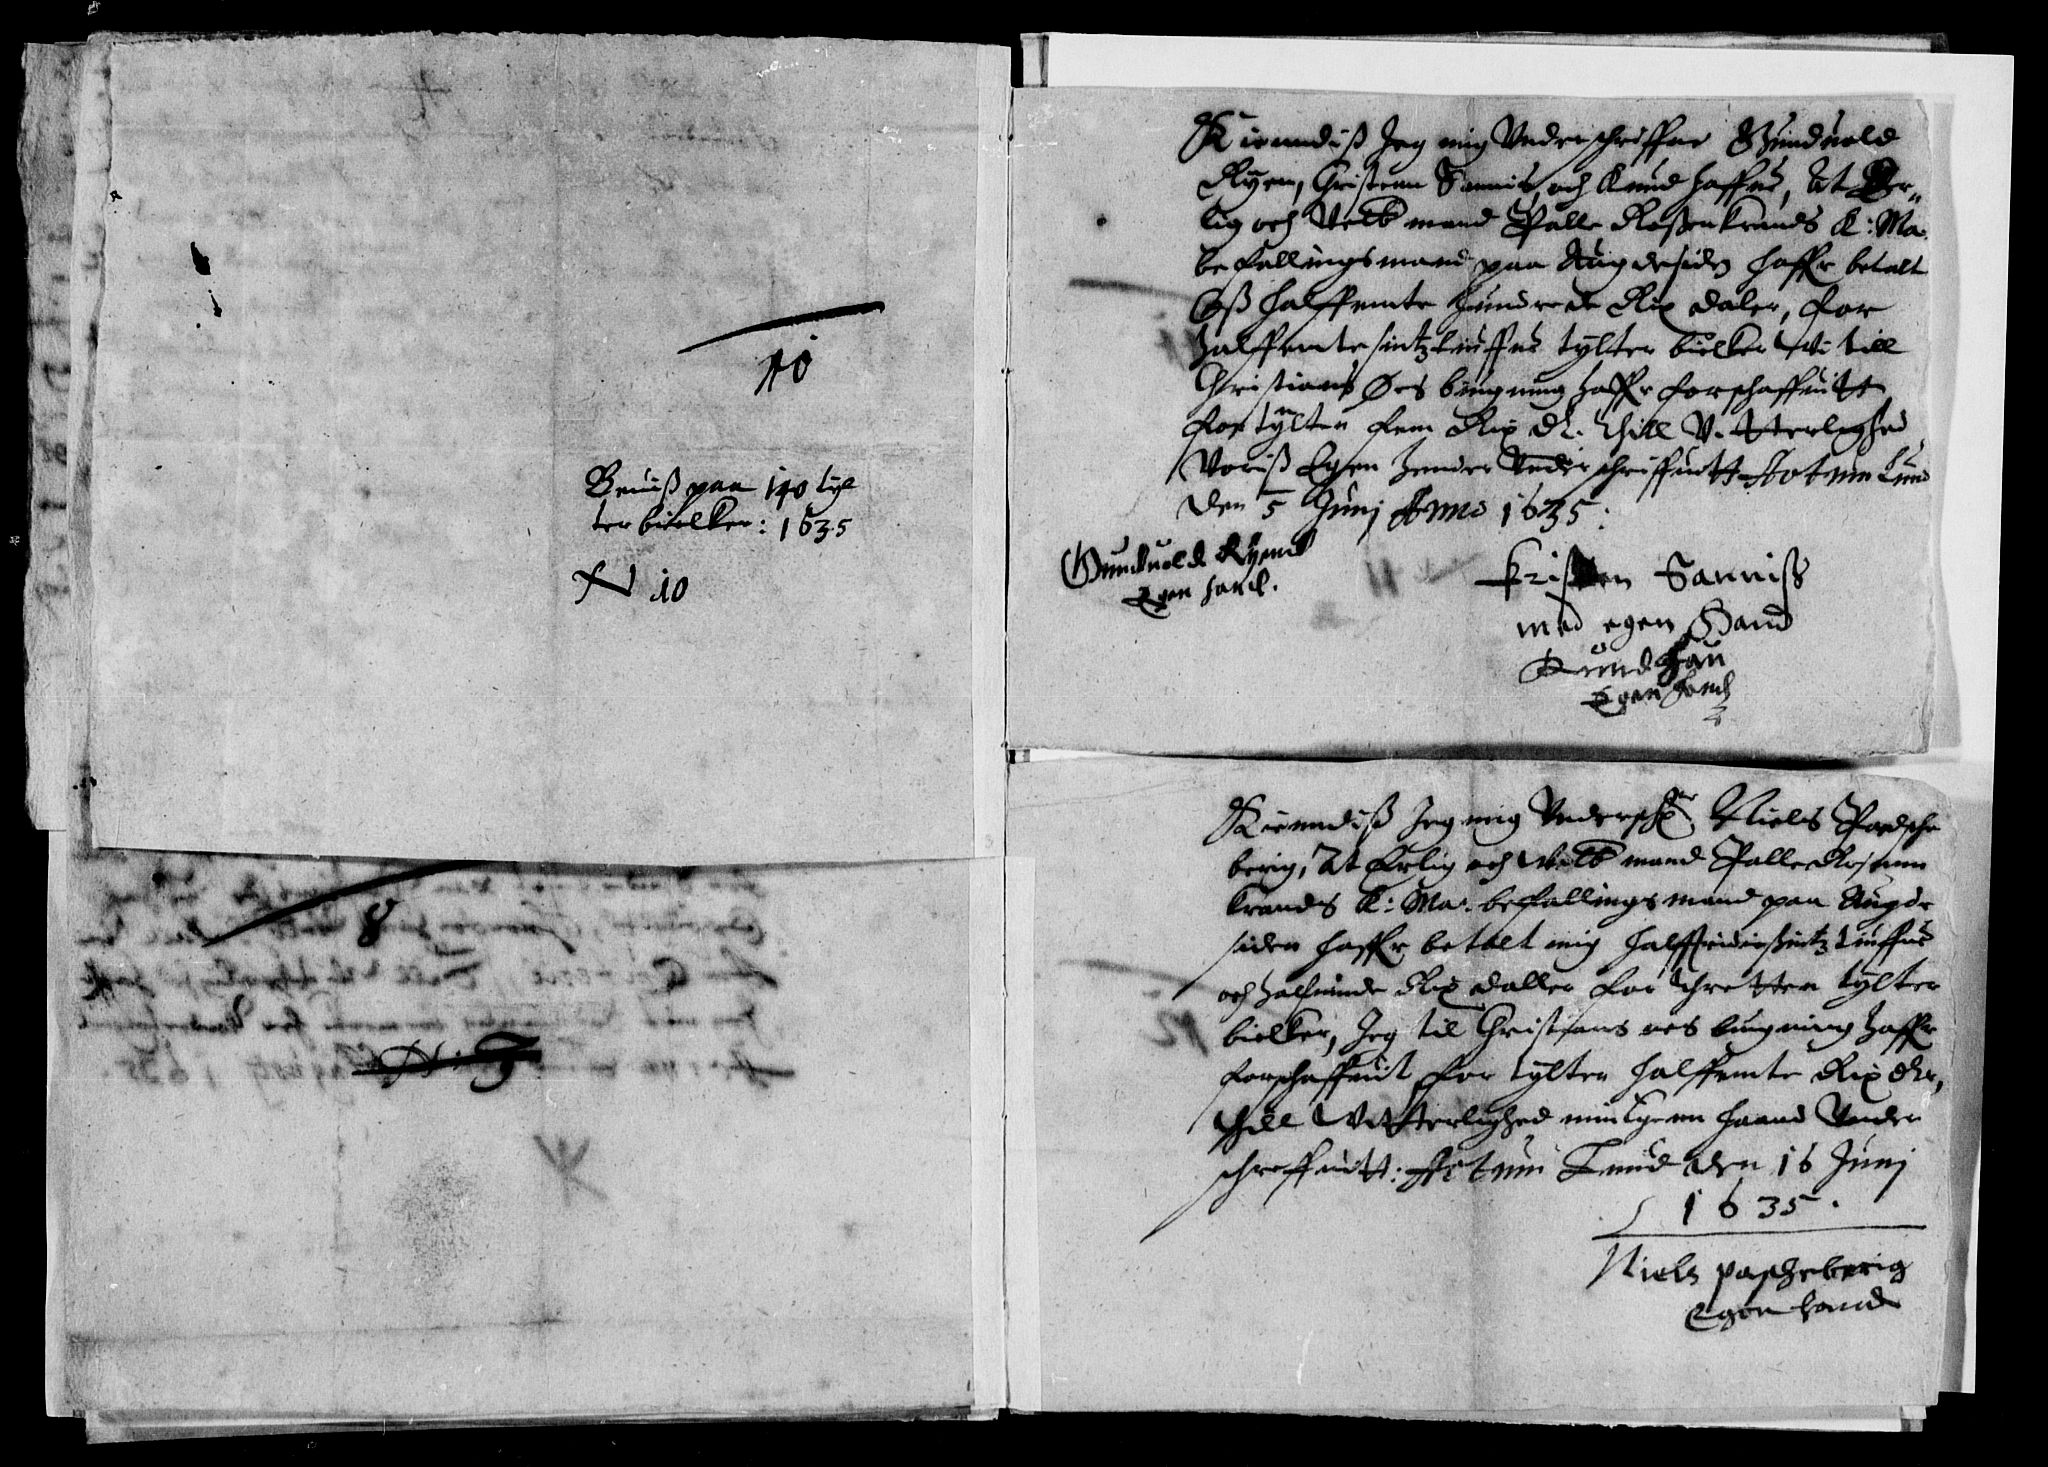 10
Beuiß paa 140 tyl
ter bielker: 1635
N 10
8
Kiendiß Jeg mig Underschriffne Gunduold
Ryen, Christenn Sannis, och Knud Haffue, At Er¬
lig och Velb mand Palle Roßenkrands K: Ma:
befallingsmand paa Augdesiden haffr betalt
Oß halffemte hundrede Rix daler, for
halffemtesintztiuffue tylter bielker Wi till
Christians Øes bugning haffr forschaffuitt
for tylten fem Rix dr. Thill V. itterlighed
Voriß Egen hender Under schriffuitt Actum Lund
den 5 Junj Anno 1635:
Gunduold Ryenn
Egen hand.
Kristen Sanniss
med egen Hand
Knud Hau
Egen hand
Kienndiß Jeg mig Undersch: Niels Paasche
berig, At Erlig och Welb mand Palle Rosenn
krands K: Ma: befallings mand paa Augde
siden haffr betalt mig halfftridiesintz tiuffue
och halfniende Rix daller for thretten tylter
bielker, Jeg til Christians øes bugning haffr
forschaffuit for tylten halffemte Rix dlr,
Thill Witterlighed min Egenn haand Under
schreffuitt: Actum Lund den 16 Junj
1635.
Niels pascheberig
Egen hand